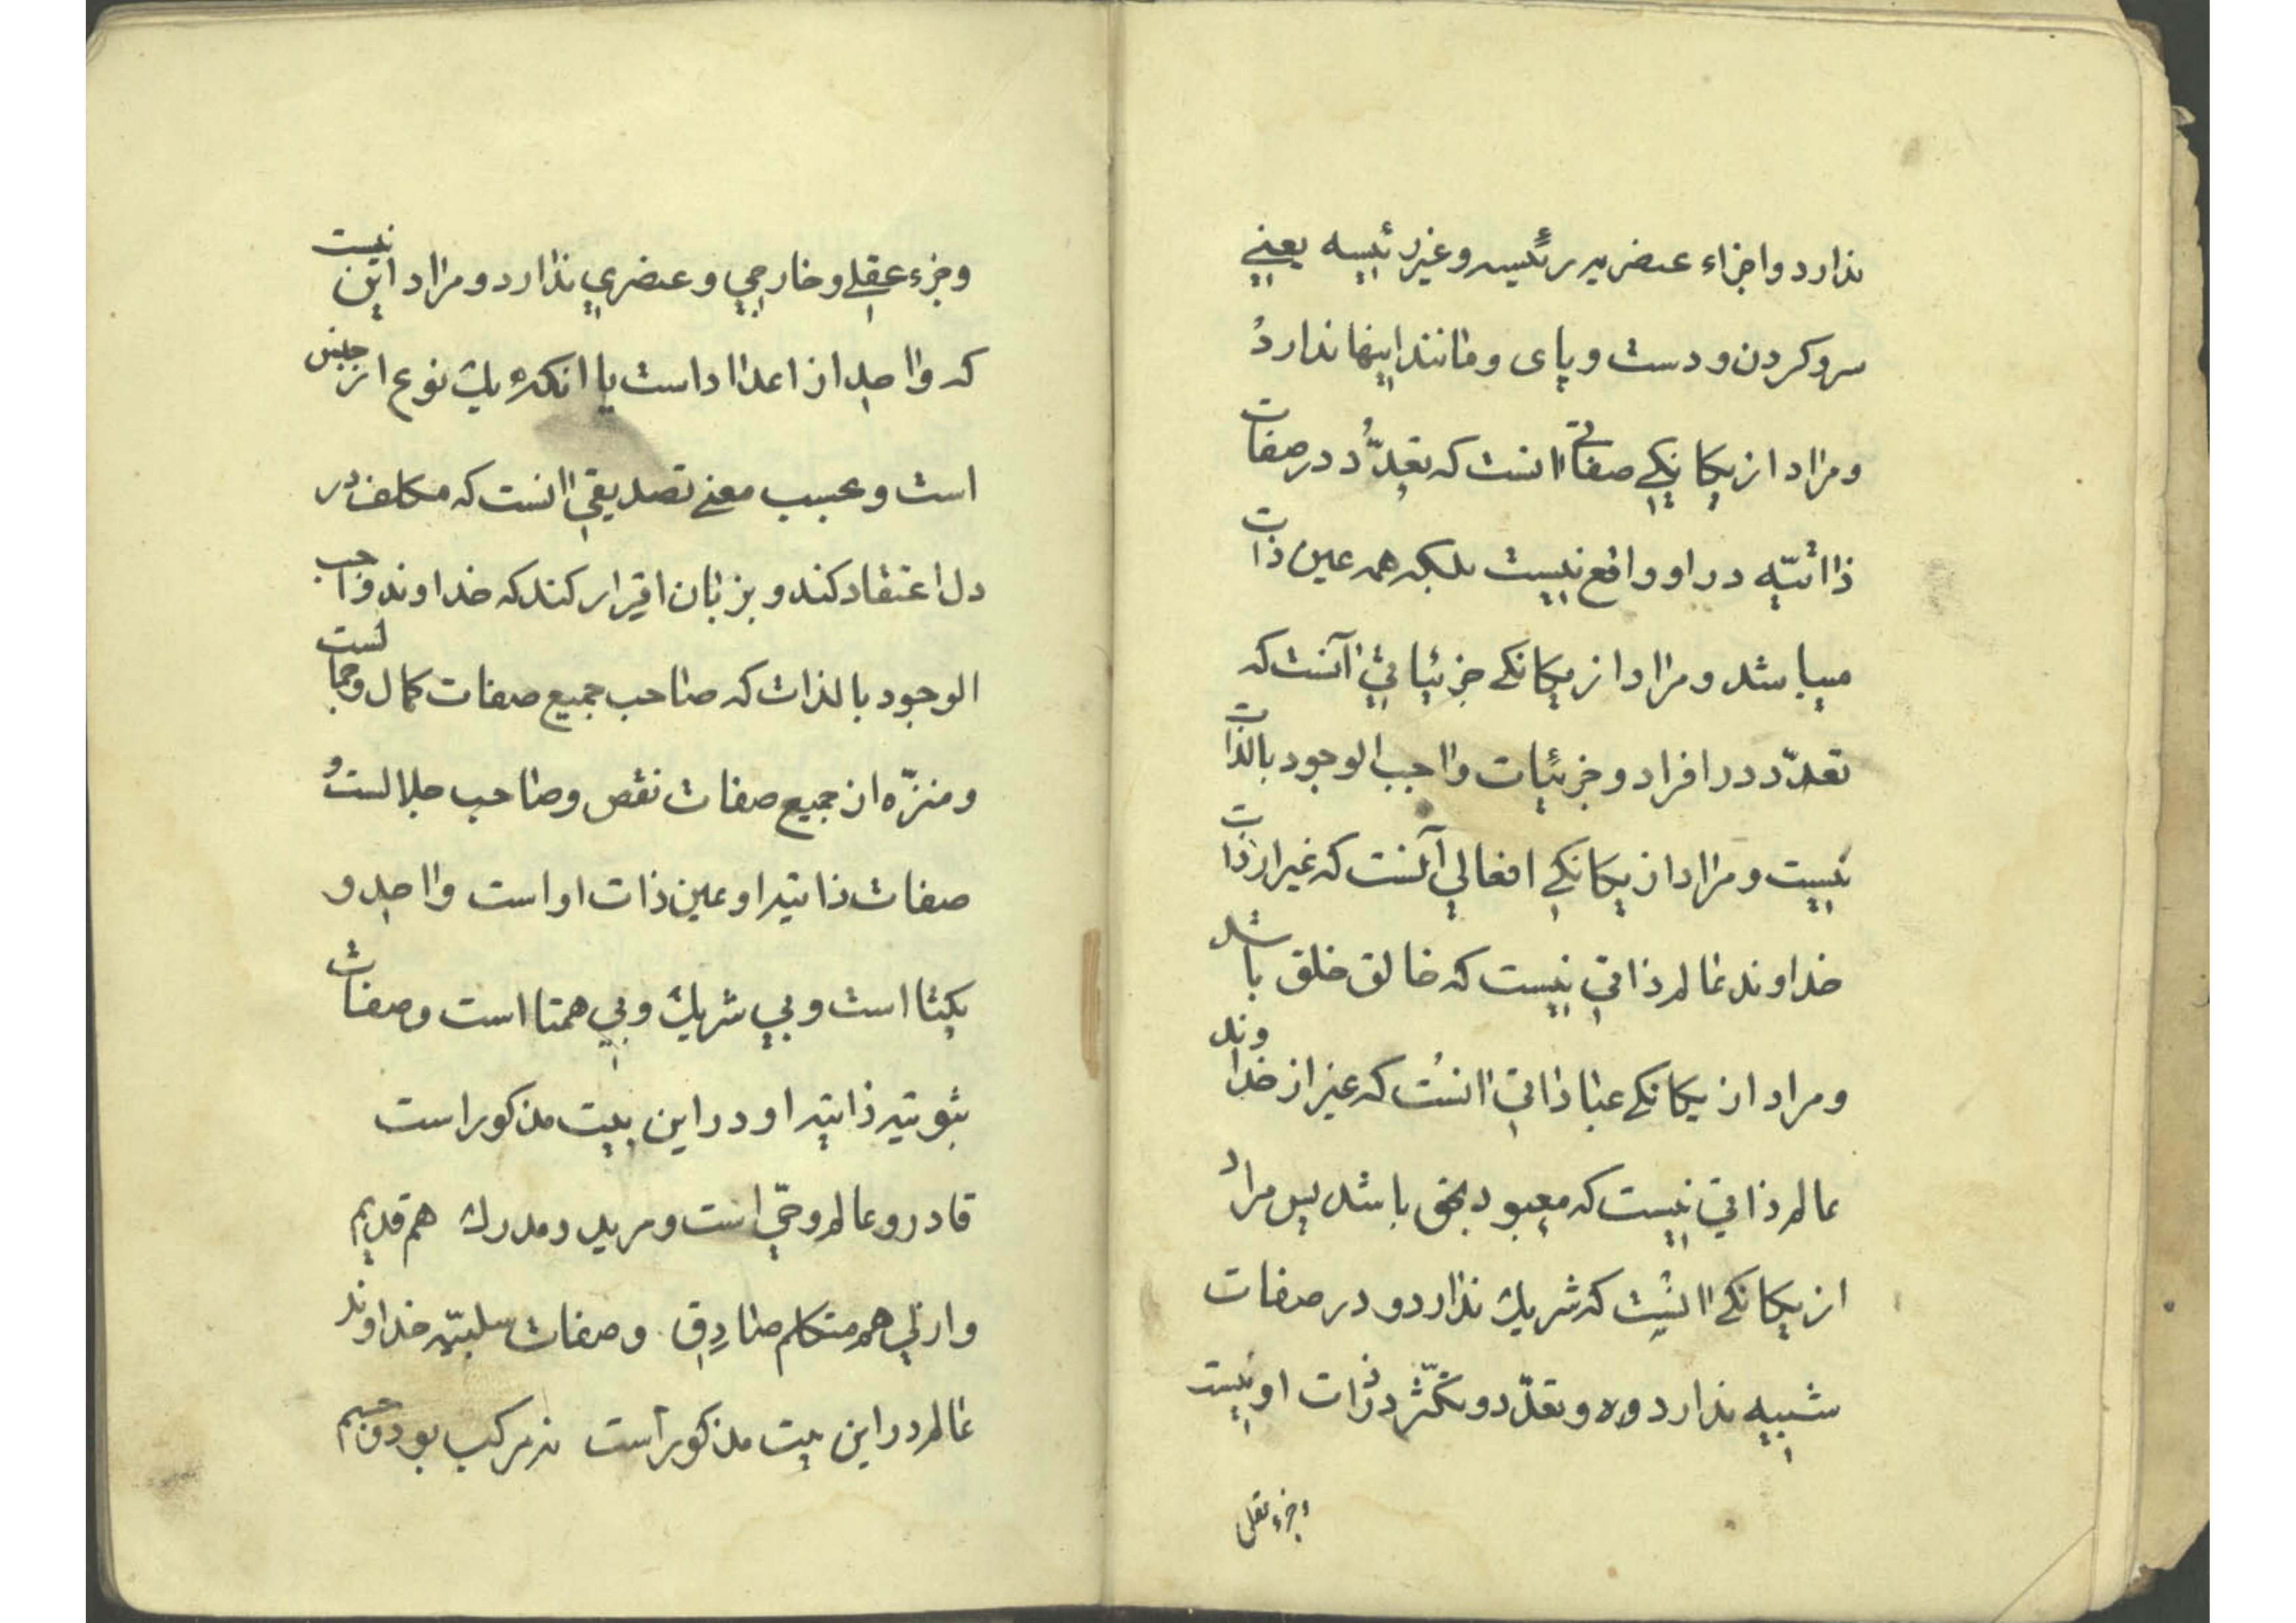 ندارد و اجزاء عنصریه رئیسه و غیر رئیسه یعنی
سر و کردن و دست و پای و مانند اینها ندارد
و مراد از یکانکی صفاتی انست که تعدّد در صفات
ذاتیّه در او واقع نیست بلکه همه عین ذات
میباشد و مراد از یکانکی جزئیاتی آنست که
تعدّد در افراد و جزئیات واجب الوجود بالذات
نیست و مراد از یکانکی افعالی آنست که غیر از ذات
خداوند عالم ذاتی نیست که خالق خلق باشد
و مراد از یکانکی عباداتی انست که غیر از خداوند
عالم ذاتی نیست که معبود بحق باشد پس مراد
از یکانکی انست که شریک ندارد و در صفات
شبیه ندارد و تعدّد و تکثّر در ذات او نیست
و جزء عقلی
و جزء عقلی و خارجی و عنصری ندارد و مراد این نیست
که واحد از اعداد است یا انکه یک نوع از جنس
است و بحسب معنی تصدیقی انست که مکلف در
دل اعتقاد کند و بزبان اقرار کند که خداوند واجب
الوجود بالذات که صاحب جمیع صفات کمال و جمالست
و منزّه از جمیع صفات نقص و صاحب جلالست و
صفات ذاتیه او عین ذات او است واحد و
یکتا است و بی شریک و بی همتا است و صفات
ثبوتیه ذاتیه او در این بیت مذکور است
قادر و عالم و حیّ است و مرید و مدرک هم قدیم
و ازلی هم متکلم صادق و صفات سلبیّه خداوند
عالم در این بیت مذکور است نه مرکب بود و جسم